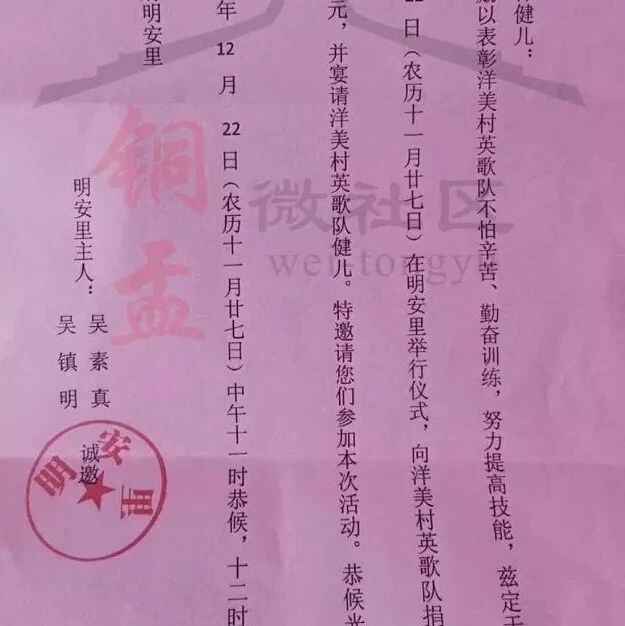 健儿：
以表彰洋美村英歌队不怕辛苦、勤奋训练，努力提高技能，兹定于
日（农历十一月廿七日）在明安里举行仪式，向洋美村英歌队捐
元，并宴请洋美村英歌队健儿。特邀请您们参加本次活动。恭候光
年 12 月 22 日（农历十一月廿七日）中午十一时恭候，十二时
明安里
明安里主人：吴素真
吴镇明
诚邀
明安里
铜盂
微社区
wei tongyu